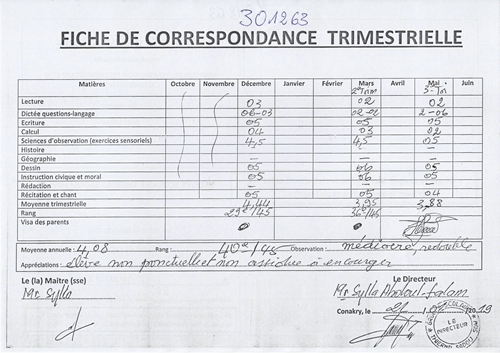 301263
FICHE DE CORRESPONDANCE TRIMESTRIELLE
Matières Octobre Novembre Décembre Janvier Février Mars Avril Mai Juin
2e Trim 3e Tri
Lecture 03 02 02
Dictée questions-langage 06-03 02-02 2-06
Ecriture 05 05 05
Calcul 04 03 02
Sciences d'observation (exercices sensoriels) 4,5 4,5 05
Histoire — — —
Géographie — — —
Dessin 05 06 05
Instruction civique et moral 05 06 05
Rédaction — — —
Récitation et chant 05 05 04
Moyenne trimestrielle 4,44 3,95 3,88
Rang 29e/45 36e/45
Visa des parents
Moyenne annuelle : 4,08 Rang : 40e/45 Observation : médiocre, redouble
Appréciations : élève non ponctuel et non assidue à encourager
Le (la) Maître (sse) Le Directeur
Mr Sylla Mr Sylla Abdoul Salam
Conakry, le 2019
LE DIRECTEUR